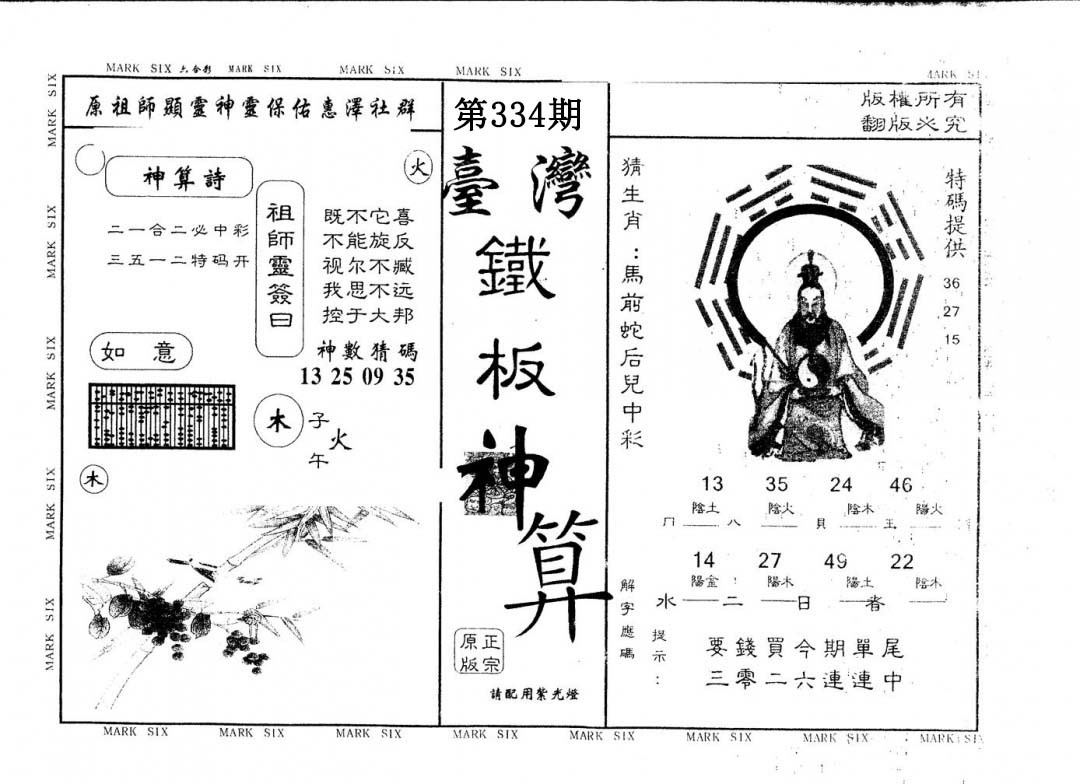 MARK SIX 六合彩 MARK SIX MARK SIX MARK SIX MARK SIX
原祖師顯靈神靈保佑惠澤社群
火
神算詩
二一合二必中彩
三五一二特码开
祖師靈簽曰
既不它喜
不能旋反
视尔不臧
我思不远
控于大邦
神數猜碼
13 25 09 35
如意
木
子
火
午
木
第334期
臺灣
鐵
板
神
算
正宗
原版
請配用紫光燈
版權所有
翻版必究
猜生肖：馬前蛇后兒中彩
特碼提供
36
27
15
13 35 24 46
陰土 陰火 陰木 陽火
八 貝 王
14 27 49 22
陽金 陽木 陽土 陰木
水 二 日
解字應碼
提示：
要錢買今期單尾
三零二六連連中
MARK SIX MARK SIX MARK SIX MARK SIX MARK SIX MARK SIX MARK SIX MARK SIX
MARK SIX
MARK SIX
MARK SIX
MARK SIX
MARK SIX